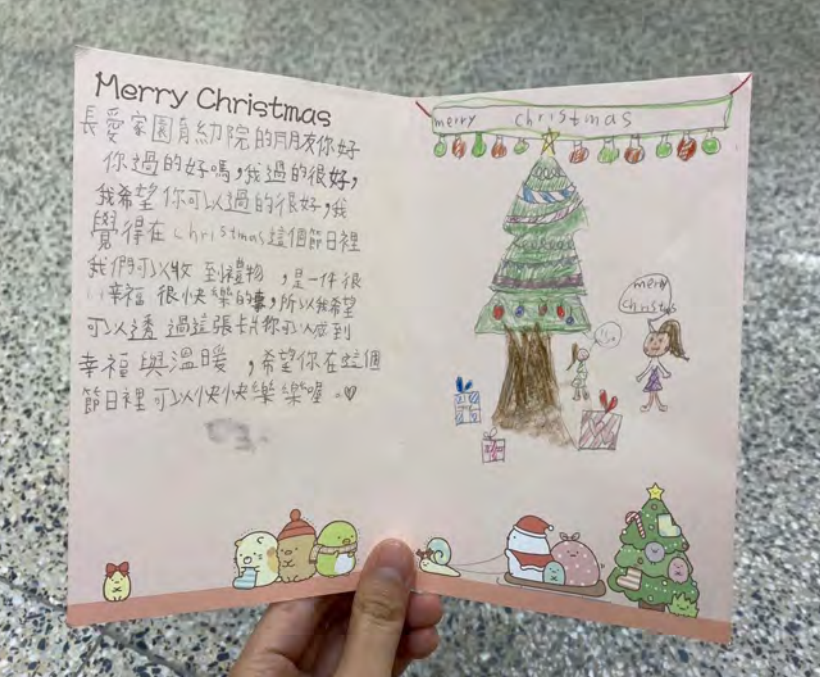 Merry Christmas
長愛家園育幼院的朋友你好
你過的好嗎,我過的很好,
我希望你可以過的很好,我
覺得在christmas這個節日裡
我們可以收到禮物,是一件很
幸福很快樂的事,所以我希望
可以透過這張卡片你可以感到
幸福與溫暖,希望你在這個
節日裡可以快快樂樂喔。♡
merry christmas
merry
christmas